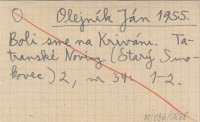 Olejník Ján 1955.
Boli sme na Kriváni. Ta-
transké Noviny (Starý Smo-
kovec) 2, nr 34: 1-2.